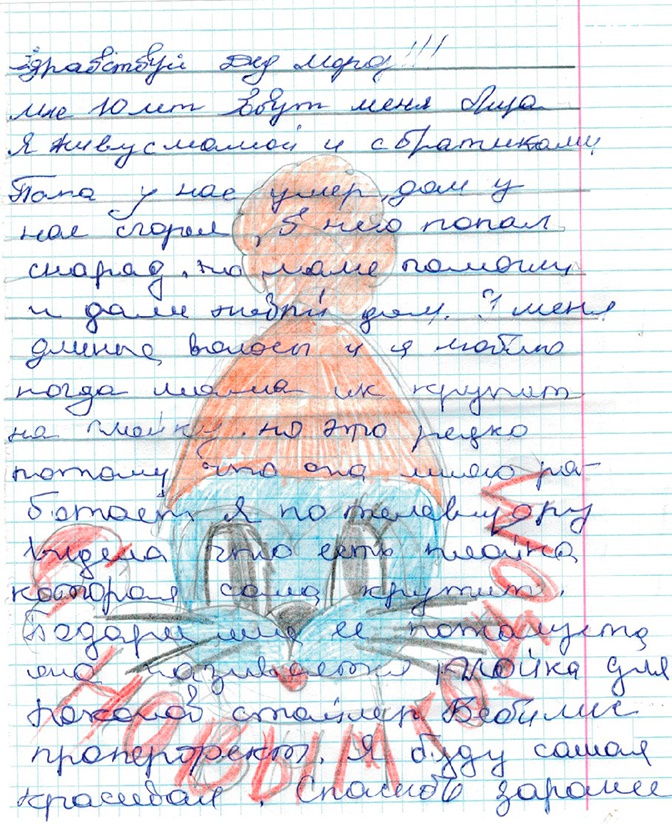 Здравствуй Дед Мороз!!!
мне 10 лет Зовут меня Лиза
Я живу с мамой и с братиками
Папа у нас умер, дом у
нас сгорел, В него попал
снаряд. но маме помогли
и дали новый дом. У меня
длиные волосы и я люблю
когда мама их крутит
на плойку. но это редко
потому что она много ра-
ботает Я по телевизору
видела что есть плойка
которая сама крутит.
Подари мне её пожалуста
она называется плойка для
локонов стайлер Бебилис
проперфект. Я буду самая
красивая. Спасибо зарание
С НОВЫМ ГОДОМ